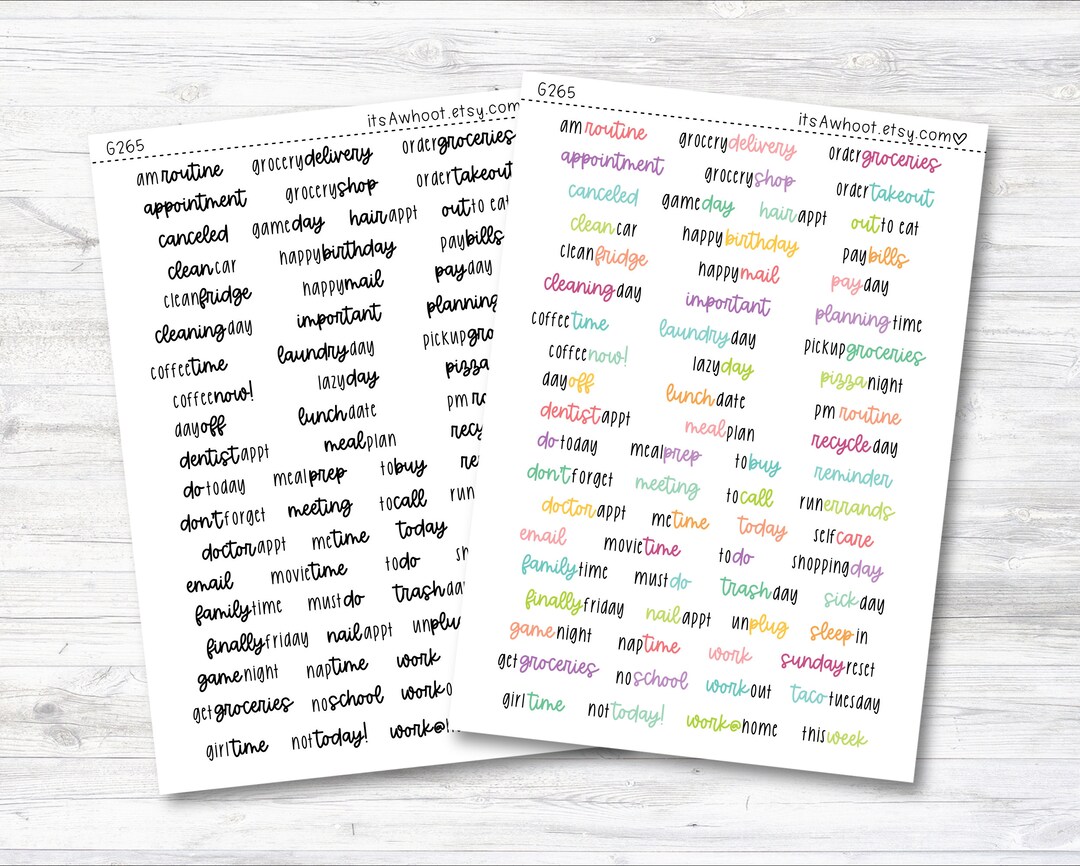 G265
itsAwhoot.etsy.com
am routine
grocery delivery
order groceries
appointment
grocery shop
order takeout
canceled
game day
hair appt
out to eat
clean car
happy birthday
pay bills
clean fridge
happy mail
pay day
cleaning day
important
planning
coffee time
laundry day
pickup gro
coffee now!
lazy day
pizza
day off
lunch date
pm ro
dentist appt
meal plan
recy
do today
meal prep
to buy
re
don't forget
meeting
to call
run
doctor appt
me time
today
email
movie time
to do
sh
family time
must do
trash da
finally friday
nail appt
unplu
game night
nap time
work
get groceries
no school
work o
girl time
not today!
work@h
G265
itsAwhoot.etsy.com♡
am routine
grocery delivery
order groceries
appointment
grocery shop
order takeout
canceled
game day
hair appt
out to eat
clean car
happy birthday
pay bills
clean fridge
happy mail
pay day
cleaning day
important
planning time
coffee time
laundry day
pickup groceries
coffee now!
lazy day
pizza night
day off
lunch date
pm routine
dentist appt
meal plan
recycle day
do today
meal prep
to buy
reminder
don't forget
meeting
to call
run errands
doctor appt
me time
today
self care
email
movie time
to do
shopping day
family time
must do
trash day
sick day
finally friday
nail appt
unplug
sleep in
game night
nap time
work
sunday reset
get groceries
no school
work out
taco tuesday
girl time
not today!
work@home
this week